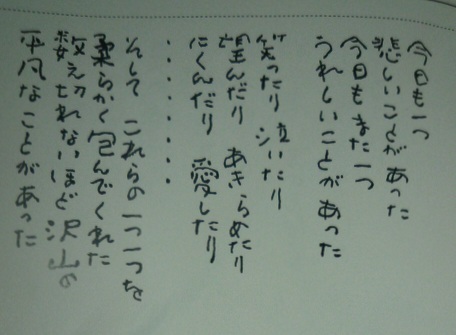 今日も一つ
悲しいことがあった
今日もまた一つ
うれしいことがあった
笑ったり 泣いたり
望んだり あきらめたり
にくんだり 愛したり
・・・・・・・
そして これらの一つ一つを
柔らかく包んでくれた
数え切れないほど沢山の
平凡なことがあった